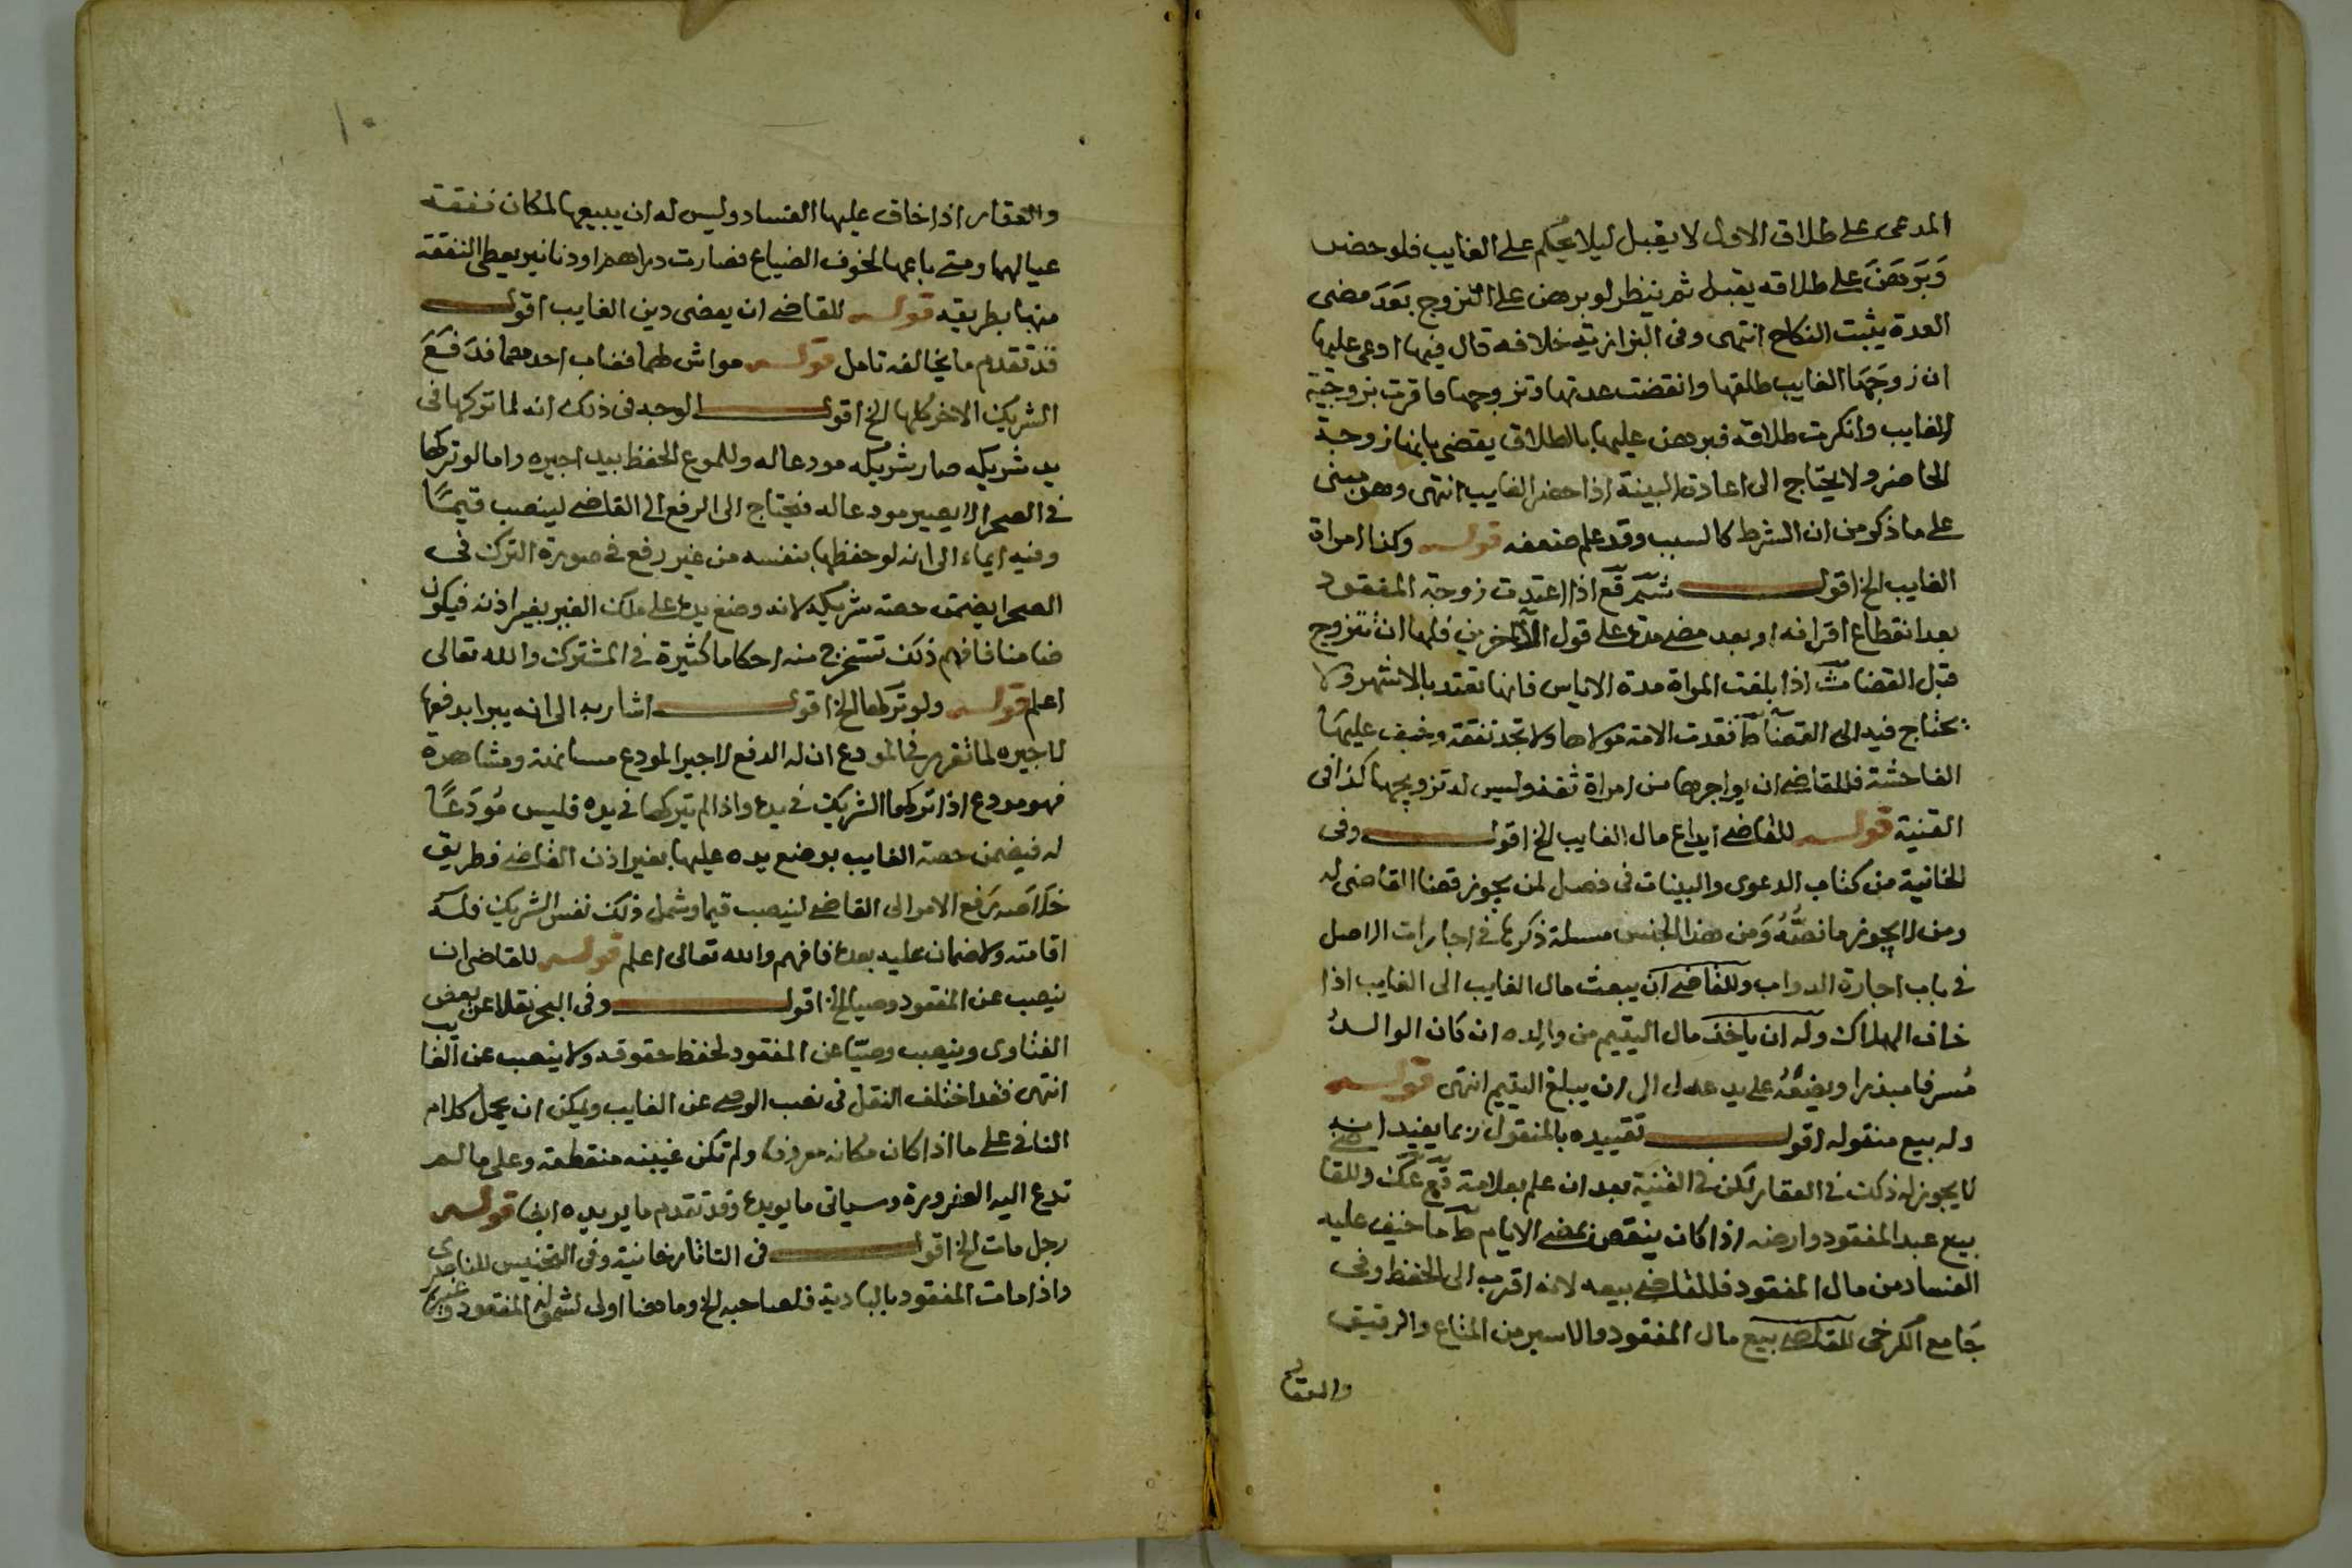 المدعى على طلاق الاول لا يقبل ليلا يحكم على الغايب فلو حضر
وَبَرهَنَ على طلاقه يقبل ثم ينظر لو برهن على التزوج بَعدَ مضى
العدة يثبت النكاح انتهى وفى البزازية خلافه قال فيها ادعى عليها
ان زوجَهَا الغايب طلقها وانقضت عدتها وتزوجها فاقرت بزوجية
الغايب وانكرت طلاقه فبرهن عليها بالطلاق يقضى بانها زوجة
الحاضر ولا يحتاج الى اعادة البينة اذا حضر الغايب انتهى وهو مبنى
على ما ذكر من ان الشرط كالسبب وقد علم ضعفه قوله وكذا امراة
الغايب الخ اقول اذا اعتدت زوجة المفقود
بعد انقطاع اقرانه او بعد مضى مدة على قول الآخرين فلها ان تتزوج
قبل القضا اذا بلغت المراة مدة الاياس فانها تعتد بالاشهر ولا
يحتاج فيه الى القضا فقدت الامة مولاها ولا تجد نفقة وخيف عليها
الفاحشة فللقاضى ان يواجرها من امراة ثقة وليس له تزويجها كذا فى
القنية قوله للقاضى ايداع مال الغايب الخ اقول وفى
الخانية من كتاب الدعوى والبينات فى فصل لمن يجوز قضا القاضى له
ومن لا يجوز ما نصُّهُ وَمن هذا الجنس مسلة ذكرها فى اجارات الاصل
فى باب اجارة الدواب وللقاضى ان يبعث مال الغايب الى الغايب اذا
خاف الهلاك وله ان ياخذ مال اليتيم من والده ان كان الوالدُ
مُسرفا مبذرا ويضعُهُ على يد عدل الى ان يبلغ اليتيم انتهى قوله
وله بيع منقوله اقول تقييده بالمنقول ربما يفيد انه
لا يجوز له ذلك فى العقار لكن فى القنية بعد ان علم بعلامة قع عك وللقاضى
بيع عبد المفقود وارضه اذا كان ينقص بمضى الايام ط ما خيف عليه
الفساد من مال المفقود فللقاضى بيعه لانه اقرب الى الحفظ وفى
جَامع الكرخى للقاضى بيع مال المفقود والاسير من المتاع والرقيق
والعقار
١٠
والعقار اذا خاف عليها الفساد وليس له ان يبيعها لمكان نفقة
عيالهما ومتى باعها لخوف الضياع فصارت دراهم او دنانير يعطى النفقة
منها بطريقه قوله للقاضى ان يقضى دين الغايب اقول
قد تقدم ما يخالفه تامل قوله مواش لهما فغاب احدهما فدَفَعَ
الشريك الاخر كلها الخ اقول الوجه فى ذلك انه لما تركها فى
يد شريكه صار شريكه مودعا له وللمودع الحفظ بيد اجيره واما لو تركها
فى الصحرا لا يصير مودعا له فيحتاج الى الرفع الى القاضى لينصب قيمًا
وفيه ايماء الى انه لو حفظها بنفسه من غير رفع فى صورة الترك فى
الصحرا يضمن حصة شريكه لانه وضع يده على ملك الغير بغير اذنه فيكون
ضامنا فافهم ذلك تستخرج منه احكاما كثيرة فى المشترك والله تعالى
اعلم قوله ولو تركها الخ اقول اشار به الى انه يبرا بدفعها
لاجيره لما تقرر فى المودع ان له الدفع لاجير المودع مسانهة ومشاهرة
فهو مودع اذا تركها الشريك فى يده واذا لم يتركها فى يده فليس مُودَعًا
له فيضمن حصة الغايب بوضع يده عليها بغير اذن القاضى فطريق
خلاصه رفع الامر الى القاضى لينصب قيما وشمل ذلك نفس الشريك فله
اقامته ولا ضمان عليه بعده فافهم والله تعالى اعلم قوله للقاضى ان
ينصب عن المفقود وصيا الخ اقول وفى البحر نقلا عن بعض
الفتاوى وينصب وصيّا عن المفقود لحفظ حقوقه ولا ينصب عن الغايب
انتهى فقد اختلف النقل فى نصب الوصى عن الغايب ويمكن ان يحمل كلام
النافى على ما اذا كان مكانه معروفا ولم تكن غيبته منقطعة وعلى ما لم
تدع اليه الضرورة وسياتى ما يويده وقد تقدم ما يويده ايضا قوله
رجل مات الخ اقول فى التاتارخانية وفى التجنيس للناصرى
واذا مات المفقود بالبادية فلصاحبه الخ وما هنا اولى لشموله المفقود وغيره